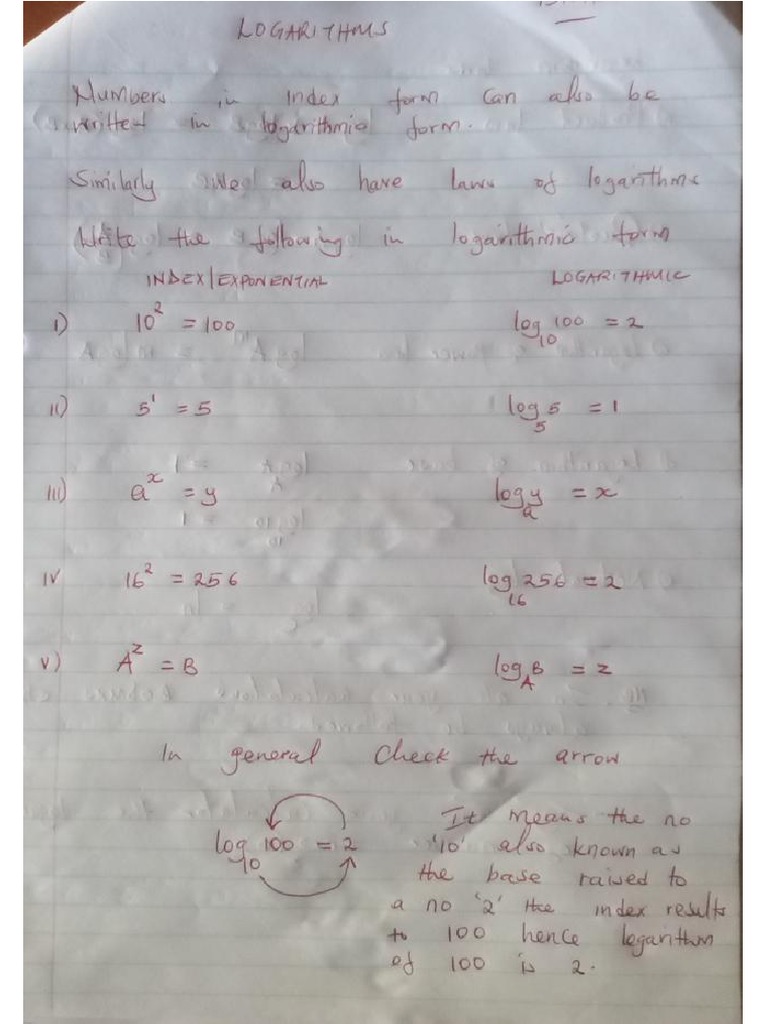 LOGARITHMS
Numbers in index form can also be
written in logarithmic form.
Similarly we also have laws of logarithms
Write the following in logarithmic form
INDEX/EXPONENTIAL LOGARITHMIC
i) 10² = 100 log₁₀ 100 = 2
ii) 5¹ = 5 log₅ 5 = 1
iii) aˣ = y logₐ y = x
iv 16² = 256 log₁₆ 256 = 2
v) A^z = B log_A B = z
In general check the arrow
log₁₀ 100 = 2
It means the no
'10' also known as
the base raised to
a no '2' the index results
to 100 hence logarithm
of 100 is 2.